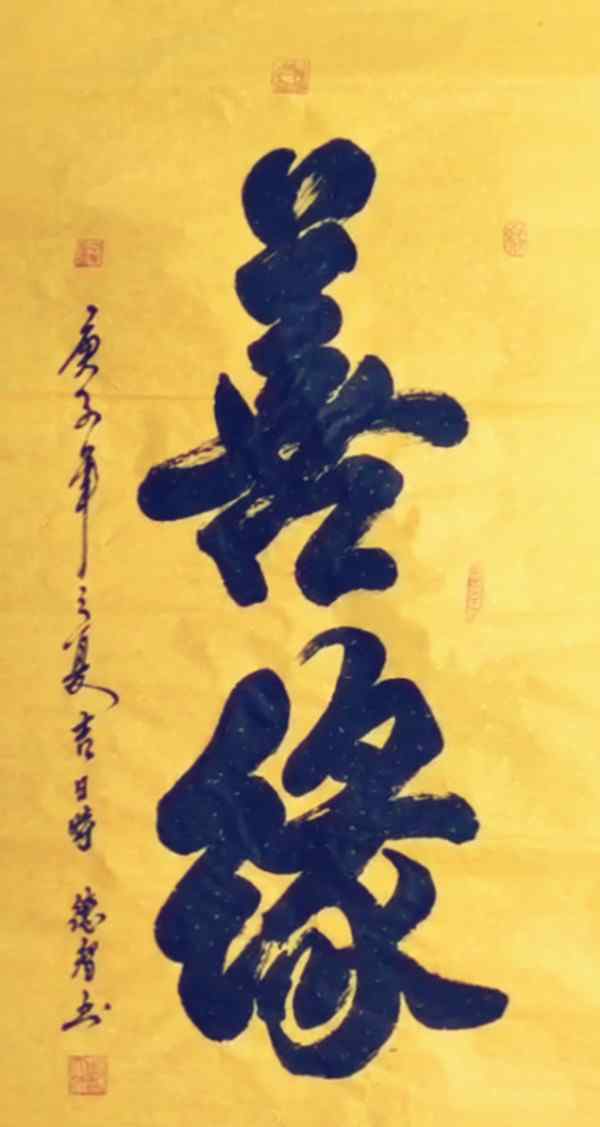 善緣
庚子年之夏吉日時 德智书